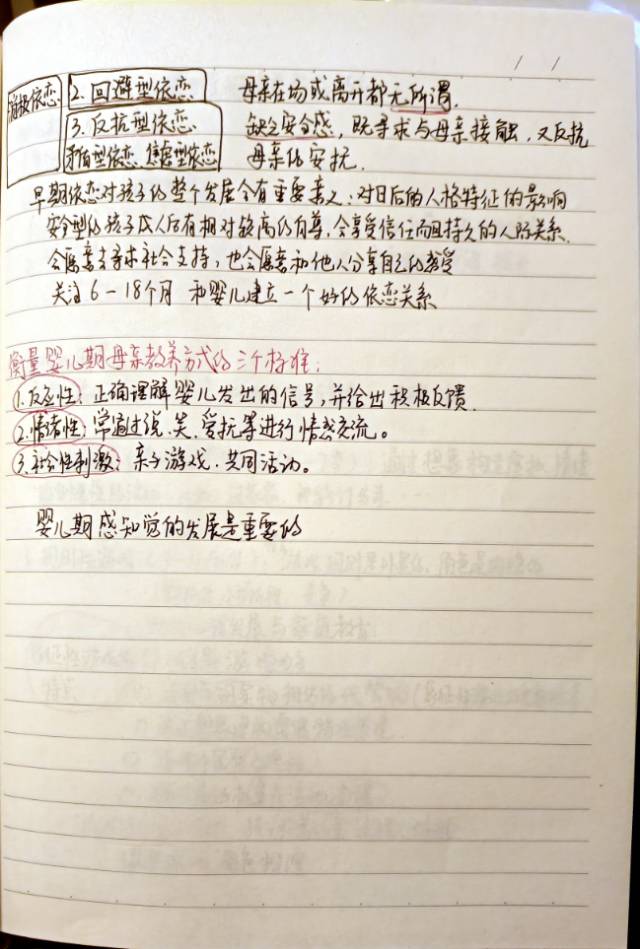 / /
消极依恋 2. 回避型依恋 母亲在场或离开都无所谓.
3. 反抗型依恋 缺乏安全感, 既寻求与母亲接触, 又反抗
矛盾型依恋, 焦虑型依恋 母亲的安抚.
早期依恋对孩子的整个发展会有重要意义: 对日后的人格特征的影响
安全型的孩子成人后有相对较高的自尊, 会享受信任而且持久的人际关系.
会愿意去寻求社会支持, 也会愿意和他人分享自己的感受
关注6-18个月 和婴儿建立一个好的依恋关系
衡量婴儿期母亲教养方式的三个标准:
1. 反应性: 正确理解婴儿发出的信号, 并给出积极反馈.
2. 情绪性: 常通过说、笑、爱抚等进行情感交流。
3. 社会性刺激: 亲子游戏、共同活动。
婴儿期感知觉的发展是重要的